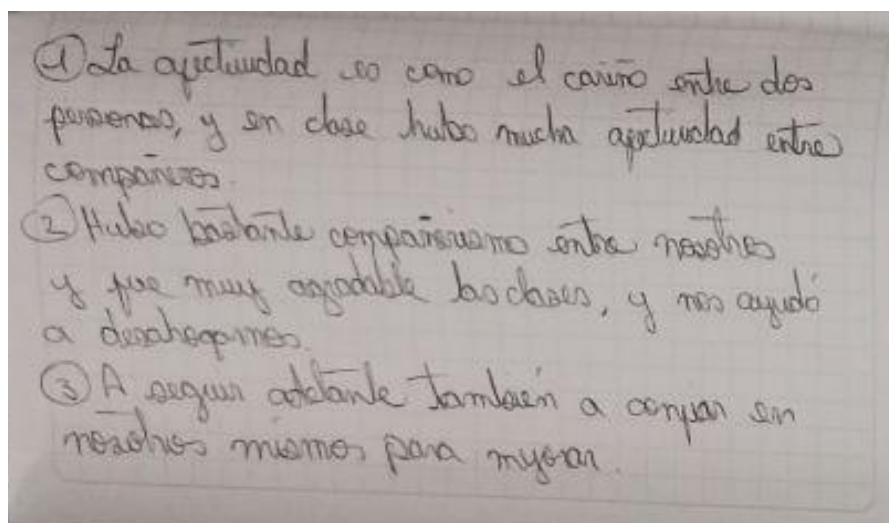 ① La afectividad es como el cariño entre dos
personas, y en clase hubo mucha afectividad entre
compañeros.
② Hubo bastante compañerismo entre nosotros
y fue muy agradable las clases, y nos ayudó
a desahogarnos.
③ A seguir adelante también a confiar en
nosotros mismos para mejorar.